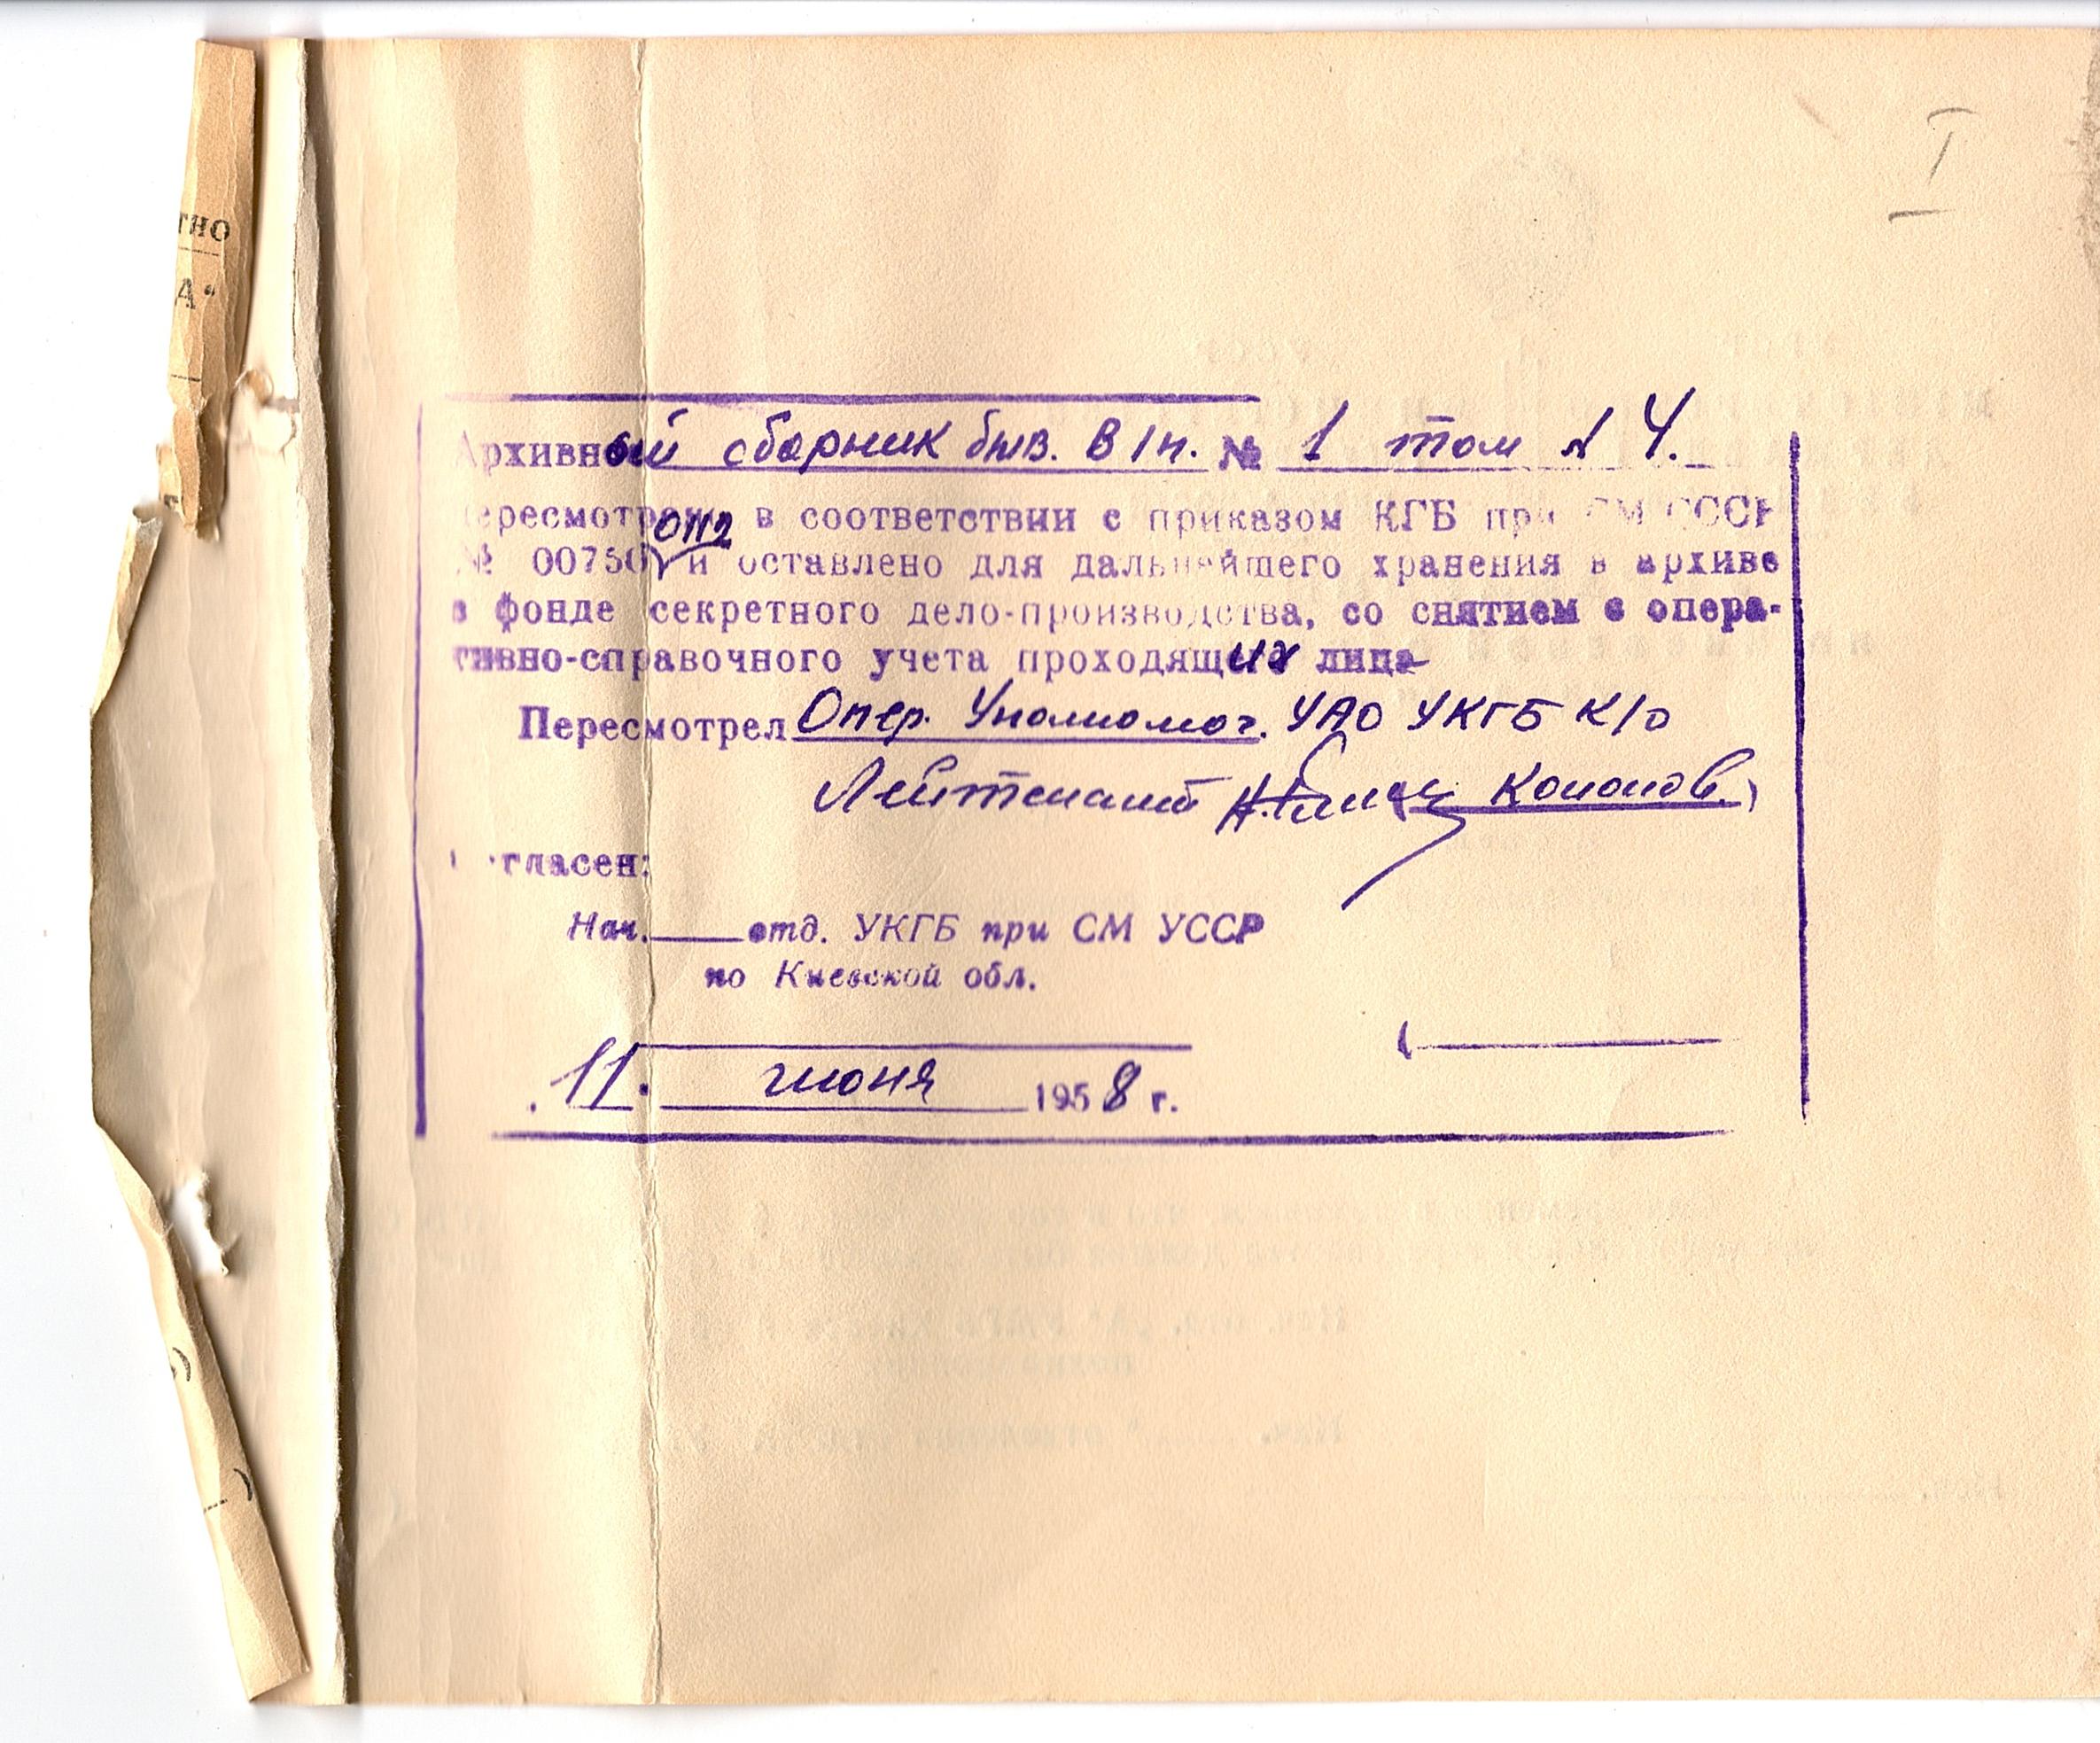 I
ТНО
А"
Архивный сборник бив. В/ч. № 1 том № 4.
пересмотрено в соответствии с приказом КГБ при СМ СССР
0112
№ 00750 и оставлено для дальнейшего хранения в архиве
в фонде секретного дело-производства, со снятием с опера-
тивно-справочного учета проходящих лиц
Пересмотрел Опер. Уполномоч. УАО УКГБ К/о
Лейтенант Кононов.)
Согласен:
Нач. отд. УКГБ при СМ УССР
по Киевской обл.
11. июня 1958 г.